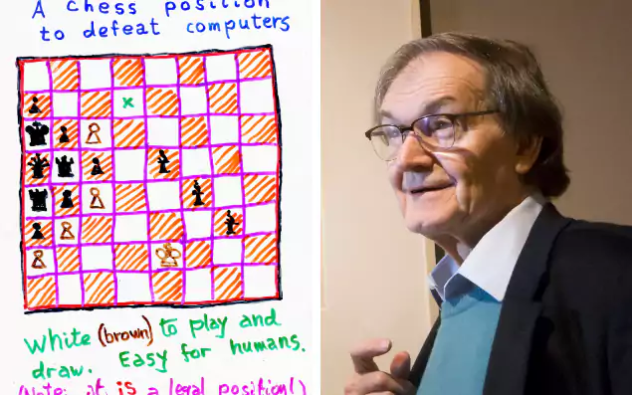 A chess position
to defeat computers
x
White (brown) to play and
draw. Easy for humans.
(Note: it is a legal position!)